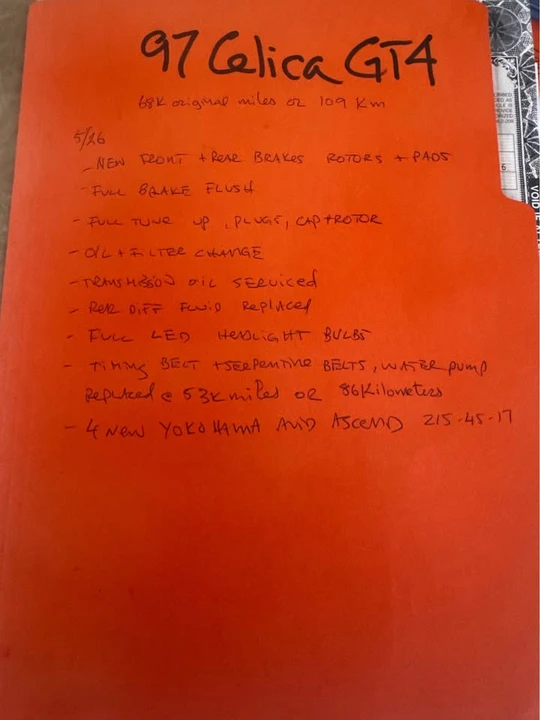 97 Celica GT4
68K original miles or 109 Km
5/26
- NEW FRONT + REAR BRAKES ROTORS + PADS
- FULL BRAKE FLUSH
- FULL TUNE UP, PLUGS, CAP+ROTOR
- OIL + FILTER CHANGE
- TRANSMISSION OIL SERVICED
- REAR DIFF FLUID REPLACED
- FULL LED HEADLIGHT BULBS
- TIMING BELT + SERPENTINE BELTS, WATER PUMP
REPLACED @ 53K miles OR 86 Kilometers
- 4 NEW YOKOHAMA AVID ASCEND 215-45-17
VOID